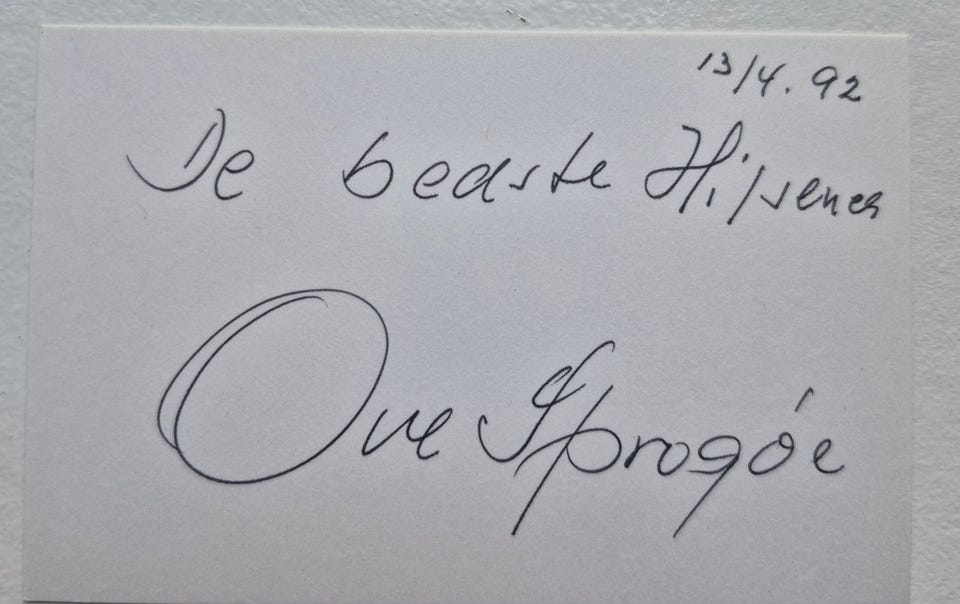 13/4. 92
De bedste Hilsener
Ove Sprogóe